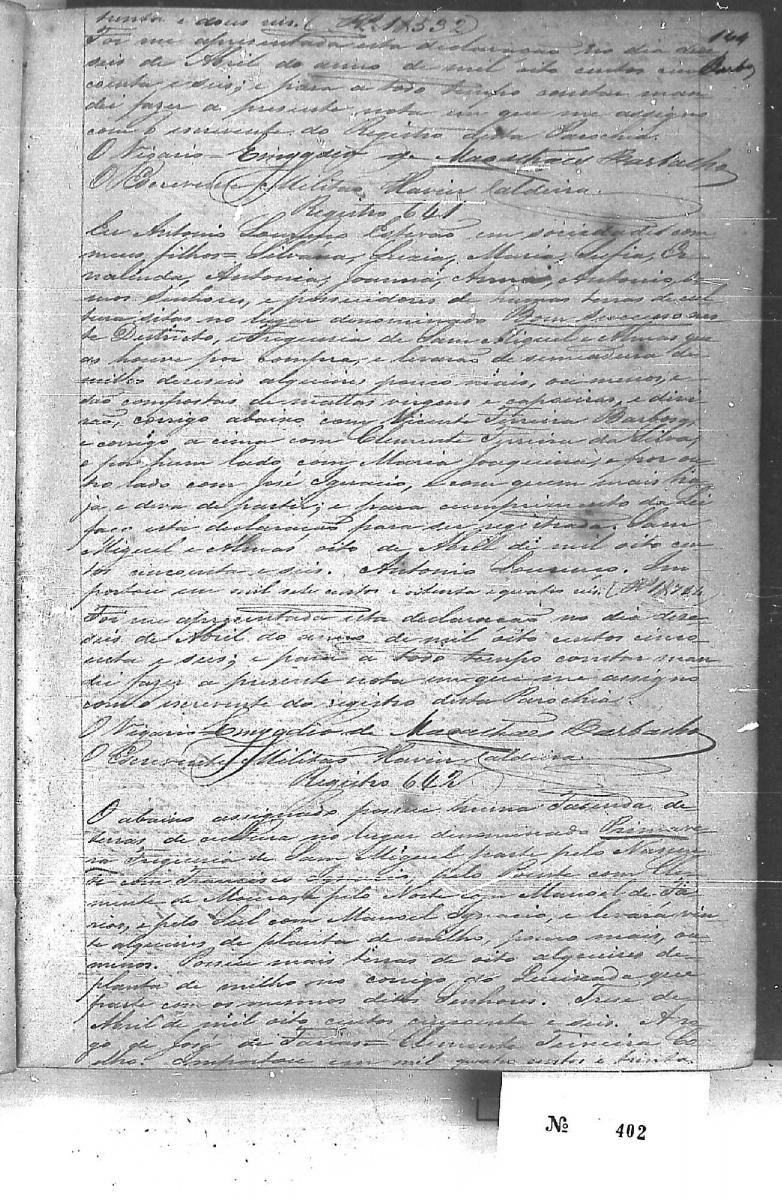 trinta e dous reis. (Rs. 1$532)
144
Foi me apresentada esta declaração no dia dese
Barb.
seis de Abril do anno de mil oito centos cin
coenta e seis; e para a todo tempo constar man
dei fazer a presente nota em que me assigno
com o escrevente do Registro desta Parochia.
O Vigario = Emygdio de Magalhaes Barbalho
O Escrevente Militão Xavier Caldeira.
Registro 641
Eu Antonio Lourenço em sociedade com
meus filhos = Silvana, Luzia, Maria, Sofia,
Antonia, Joanna, Anna, Antonio,
mos Senhores, e possuidores de humas terras de cul
tura sitas no lugar denominado Bom Successo nes
te Districto, e Freguesia de Sam Miguel e Almas que
as houve por compra, e levarão de semeadura de
milho deseseis alqueires pouco mais, ou menos, e
são compostas de mattas virgens e capoeiras, e divi
são, corrigo abaixo com Vicente Ferreira Barbosa,
e corrigo a cima com Clemente da Silva,
e por hum lado com Maria Joaquina, e por ou
tro lado com José Ignacio, e com quem mais ha
ja, e deva de partir; e para cumprimento da Lei
faço esta declaracão para ser registrada. Sam
Miguel e Almas oito de Abril de mil oito cen
tos cincoenta e seis. Antonio Lourenço. Im
portou em mil sete centos e oitenta e quatro reis. (Rs. 1$784)
Foi me apresentada esta declaracão no dia dese
seis de Abril do anno de mil oito centos cinco
enta e seis; e para a todo tempo constar man
dei fazer a presente nota em que me assigno
com o escrevente do registro desta Parochia.
O Vigario = Emygdio de Magalhaes Barbalho
O Escrevente Militão Xavier Caldeira.
Registro 642
O abaixo assignado possue huma Fasenda de
terras de cultura no lugar denominado Primave
ra Freguesia de Sam Miguel parte pelo Nascen
te com Francisco Ignacio, pelo Poente com Cle
mente de Moura, e pelo Norte com Manoel de Fa
rios, e pelo Sul com Manoel Ignacio, e levará vin
te alqueires de planta de milho, pouco mais, ou
menos. Possue mais terras de oito alqueires de
planta de milho no corrigo do que
parte com os mesmos ditos Senhores. Trese de
Abril de mil oito centos cincoenta e seis. A ro
go de José de Farias = Clemente Teixeira Co
elho. Importou em mil quatro centos e trinta.
Nº 402